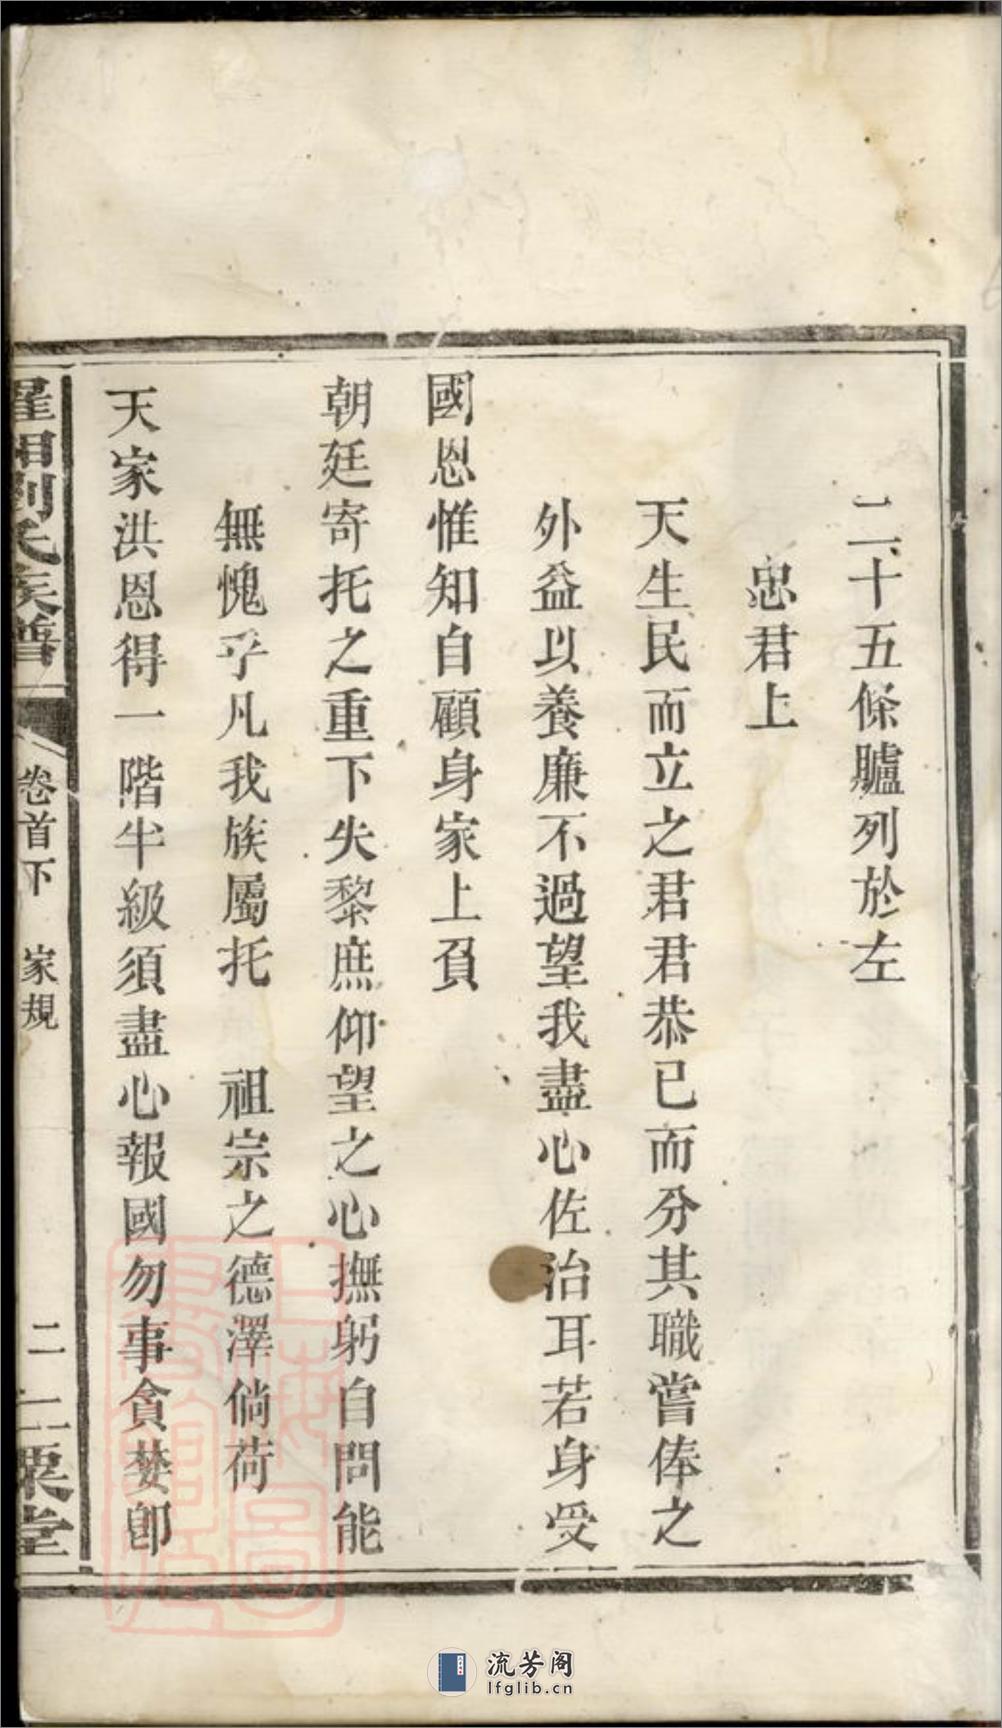 二十五條臚列於左
忠君上
天生民而立之君君恭已而分其職嘗俸之
外益以養廉不過望我盡心佐治耳若身受
國恩惟知自顧身家上負
朝廷寄托之重下失黎庶仰望之心撫躬自問能
無愧乎凡我族屬托　祖宗之德澤倘荷
天家洪恩得一階半級須盡心報國勿事貪婪卽
劉氏族譜
卷首下　家規
二
二栗堂
流芳阁
lfglib.cn